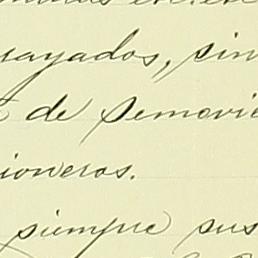 uayados, sin
de Semovie
ioneros.
siempre sus